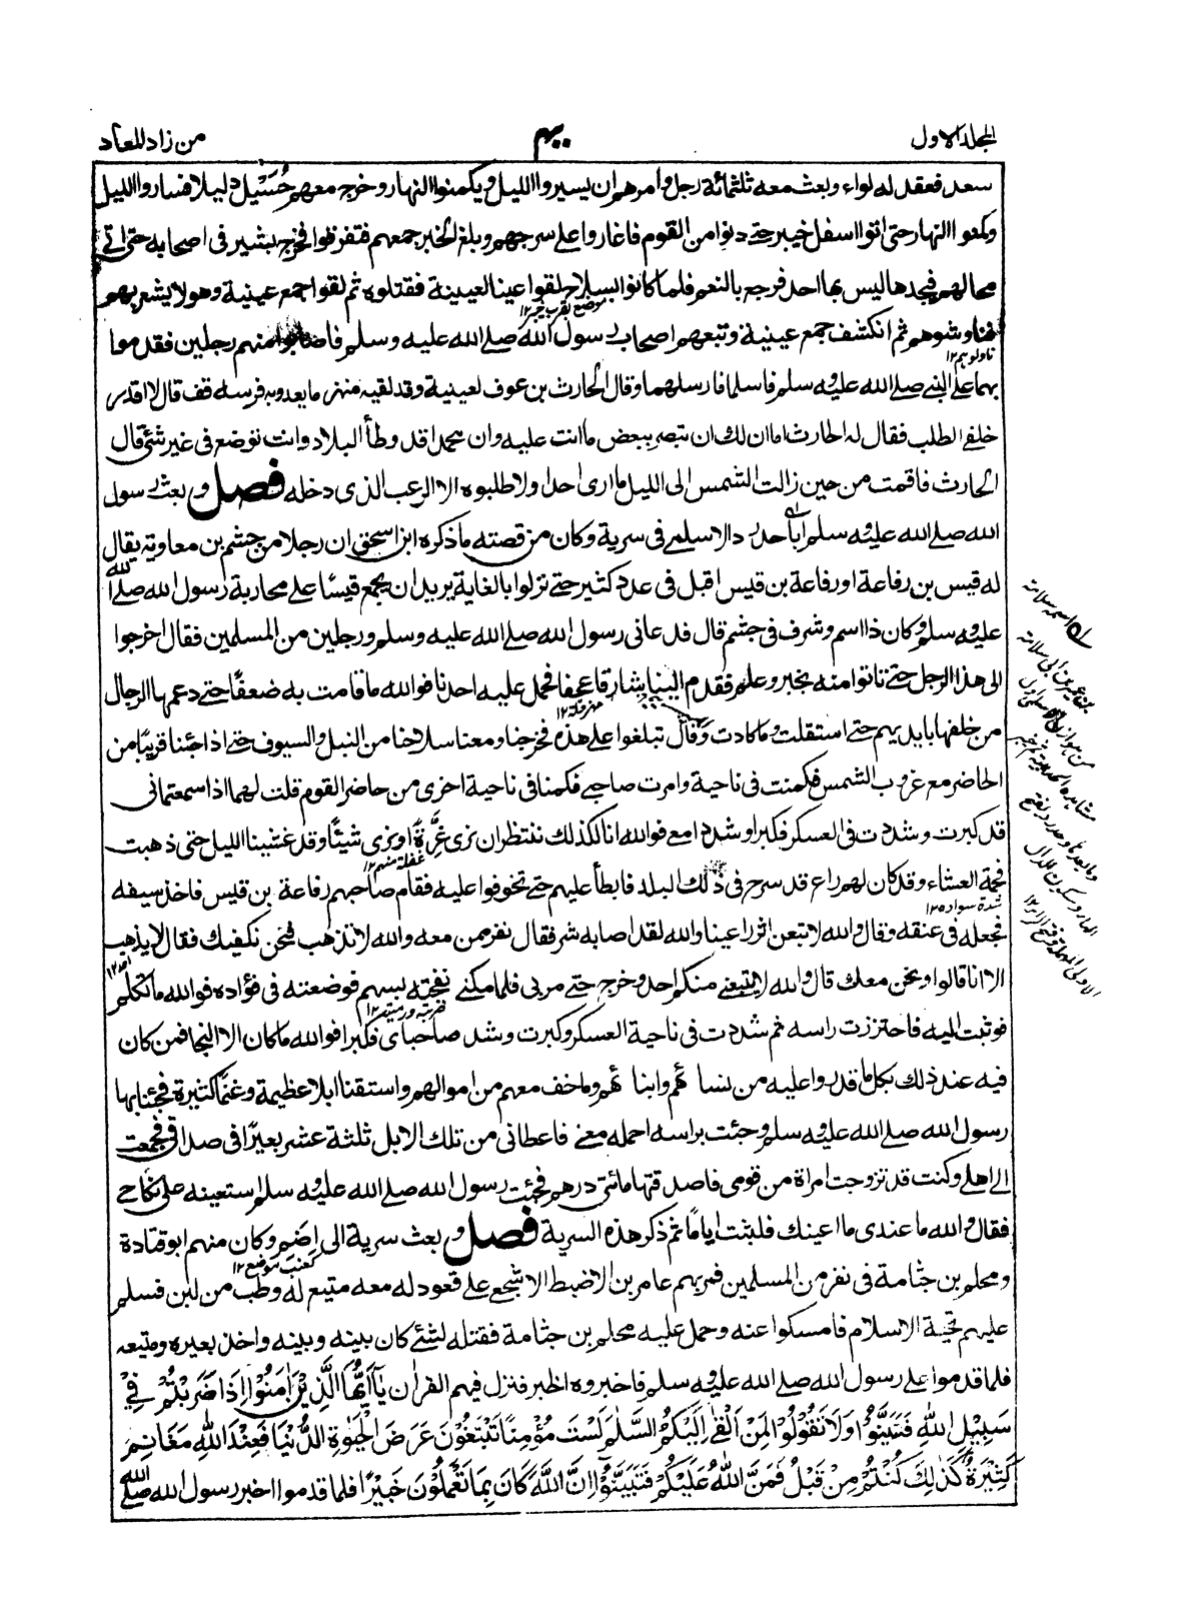 المجلد الاول
من زاد المعاد
سعد فعقد له لواء وبعث معه ثلثمائة رجل وامرهم ان يسيروا الليل ويكمنوا النهار وخرج معهم حُسَيْل دليلا فساروا الليل
وكمنوا النهار حتى اتوا اسفل خيبر حتى دنوا من القوم فاغاروا على سرحهم وبلغ الخبر جمعهم فتفرقوا فخرج بشير فى اصحابه حتى اتى
محالهم فيجدها ليس بها احد فرجع بالنعم فلما كانوا بسلاح لقوا عينا لعيينة فقتلوه ثم لقوا جمع عيينة وهو لا يشعر بهم
موضع بقرب خيبر ١٢
فناوشوهم ثم انكشف جمع عيينة وتبعهم اصحاب رسول الله صلى الله عليه وسلم فاصابوا منهم رجلين فقدموا
بهما على النبى صلى الله عليه وسلم فاسلما فارسلهما وقال الحارث بن عوف لعيينة وقد لقيه منهزما يعدو به فرسه قف قال لا اقدر
خلفى الطلب فقال له الحارث اما ان لك ان تبصر ببعض ما انت عليه وان محمدا قد وطأ البلاد وانت توضع فى غير شئى قال
الحارث فاقمت من حين زالت الشمس الى الليل ما ارى احدا ولا طلبوه الا الرعب الذى دخله فصل وبعث رسول
الله صلى الله عليه وسلم ابا حدرد الاسلمى فى سرية وكان من قصته ما ذكره ابن اسحق ان رجلا من جشم بن معاوية يقال
له قيس بن رفاعة او رفاعة بن قيس اقبل فى عدد كثير حتى نزلوا بالغاية يريد ان يجمع قيسًا على محاربة رسول الله صلى الله
عليه وسلم وكان ذا اسم وشرف فى جشم قال فدعانى رسول الله صلى الله عليه وسلم ورجلين من المسلمين فقال اخرجوا
الى هذا الرجل حتى تاتوا منه بخبر وعلم فقدم الينا شارفا عجفا فحمل عليه احدنا فوالله ما قامت به ضعفًا حتى دعمها الرجال
من خلفها بايديهم حتى استقلت وما كادت وقال تبلغوا على هذه فخرجنا ومعنا سلاحنا من النبل والسيوف حتى اذا جئنا قريبًا من
الحاضر مع غروب الشمس فكمنت فى ناحية وامرت صاحبى فكمنا فى ناحية اخرى من حاضر القوم قلت لهما اذا سمعتمانى
قد كبرت وشددت فى العسكر فكبرا وشددا معى فوالله انا كذلك ننتظر ان نرى غِرَّةً او نرى شيئًا وقد غشينا الليل حتى ذهبت
فحمة العشاء وقد كان لهم راع قد سرح فى ذلك البلد فابطأ عليهم حتى تخوفوا عليه فقام صاحبهم رفاعة بن قيس فاخذ سيفه
شدة سواده ١٢
فجعله فى عنقه وقال والله لا تبعن اثر راعينا والله لقد اصابه شر فقال نفر من معه والله لا تذهب نحن نكفيك فقال لا يذهب
الا انا قالوا ونحن معك قال والله لا يتبعنى منكم احد وخرج حتى مر بى فلما امكننى نفحته بسهم فوضعته فى فؤاده فوالله ما تكلم
فوثبت اليه فاحتززت راسه ثم شددت فى ناحية العسكر وكبرت وشد صاحباى فكبرا فوالله ما كان الا النجا فمن كان
فيه عند ذلك بكل ما قدروا عليه من نسائهم وابنائهم وما خف معهم من اموالهم واستقنا ابلا عظيمة وغنمًا كثيرة فجئنا بها
رسول الله صلى الله عليه وسلم وجئت براسه احمله معى فاعطانى من تلك الابل ثلثة عشر بعيرًا فى صداقى فجمعت
الى اهلى وكنت قد تزوجت امراة من قومى فاصدقتها مائتى درهم فجئت رسول الله صلى الله عليه وسلم استعينه على نكاحى
فقال والله ما عندى ما اعينك فلبثت ايامًا ثم ذكر هذه السرية فصل وبعث سرية الى اِضَم وكان منهم ابو قتادة
كعنب موضع ١٢
ومحلم بن جثامة فى نفر من المسلمين فمر بهم عامر بن الاضبط الاشجعى على قعود له معه متيع له وطب من لبن فسلم
عليهم تحية الاسلام فامسكوا عنه وحمل عليه محلم بن جثامة فقتله لشئ كان بينه وبينه واخذ بعيره ومتيعه
فلما قدموا على رسول الله صلى الله عليه وسلم فاخبروه الخبر فنزل فيهم القرآن يٰٓاَيُّهَا الَّذِيْنَ اٰمَنُوْا اِذَا ضَرَبْتُمْ فِىْ
سَبِيْلِ اللهِ فَتَبَيَّنُوْا وَلَا تَقُوْلُوْا لِمَنْ اَلْقٰى اِلَيْكُمُ السَّلٰمَ لَسْتَ مُؤْمِنًا تَبْتَغُوْنَ عَرَضَ الْحَيٰوةِ الدُّنْيَا فَعِنْدَ اللهِ مَغَانِمُ
كَثِيْرَةٌ كَذٰلِكَ كُنْتُمْ مِنْ قَبْلُ فَمَنَّ اللهُ عَلَيْكُمْ فَتَبَيَّنُوْٓا اِنَّ اللهَ كَانَ بِمَا تَعْمَلُوْنَ خَبِيْرًا فلما قدموا اخبر رسول الله صلى الله